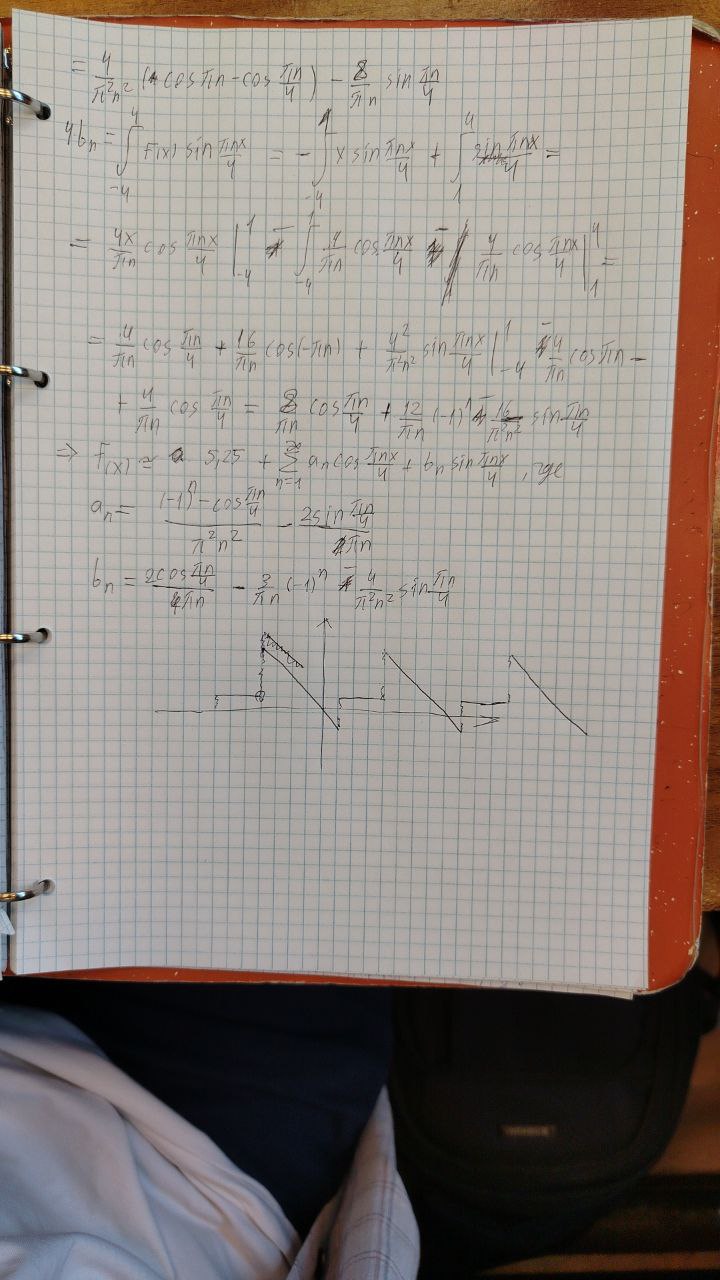 = 4/(π²n²) (cos πn - cos πn/4) - 8/(πn) sin πn/4
4bₙ = ∫₋₄⁴ F(x) sin πnx/4 = - ∫₋₄¹ x sin πnx/4 + ∫₁⁴ sin πnx/4 =
= 4x/(πn) cos πnx/4 |₋₄¹ - ∫₋₄¹ 4/(πn) cos πnx/4 - 4/(πn) cos πnx/4 |₁⁴ =
= 4/(πn) cos πn/4 + 16/(πn) cos(-πn) + 4²/(π²n²) sin πnx/4 |₋₄¹ - 4/(πn) cos πn -
+ 4/(πn) cos πn/4 = 8/(πn) cos πn/4 + 12/(πn) (-1)ⁿ - 16/(π²n²) sin πn/4
⇒ F(x) ≃ 5,25 + ∑ₙ₌₁^∞ aₙ cos πnx/4 + bₙ sin πnx/4, где
aₙ = ((-1)ⁿ - cos πn/4)/(π²n²) - (2 sin πn/4)/(πn)
bₙ = (2 cos πn/4)/(πn) - 3/(πn) (-1)ⁿ - 4/(π²n²) sin πn/4